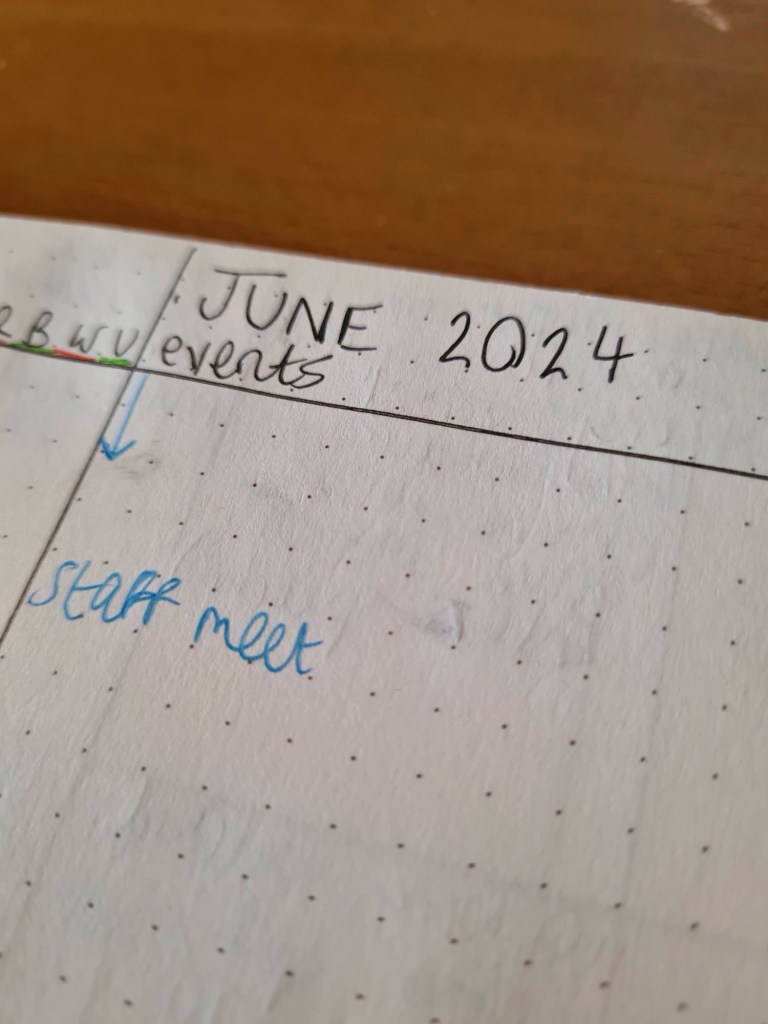 JUNE 2024
B W U events
staff meet